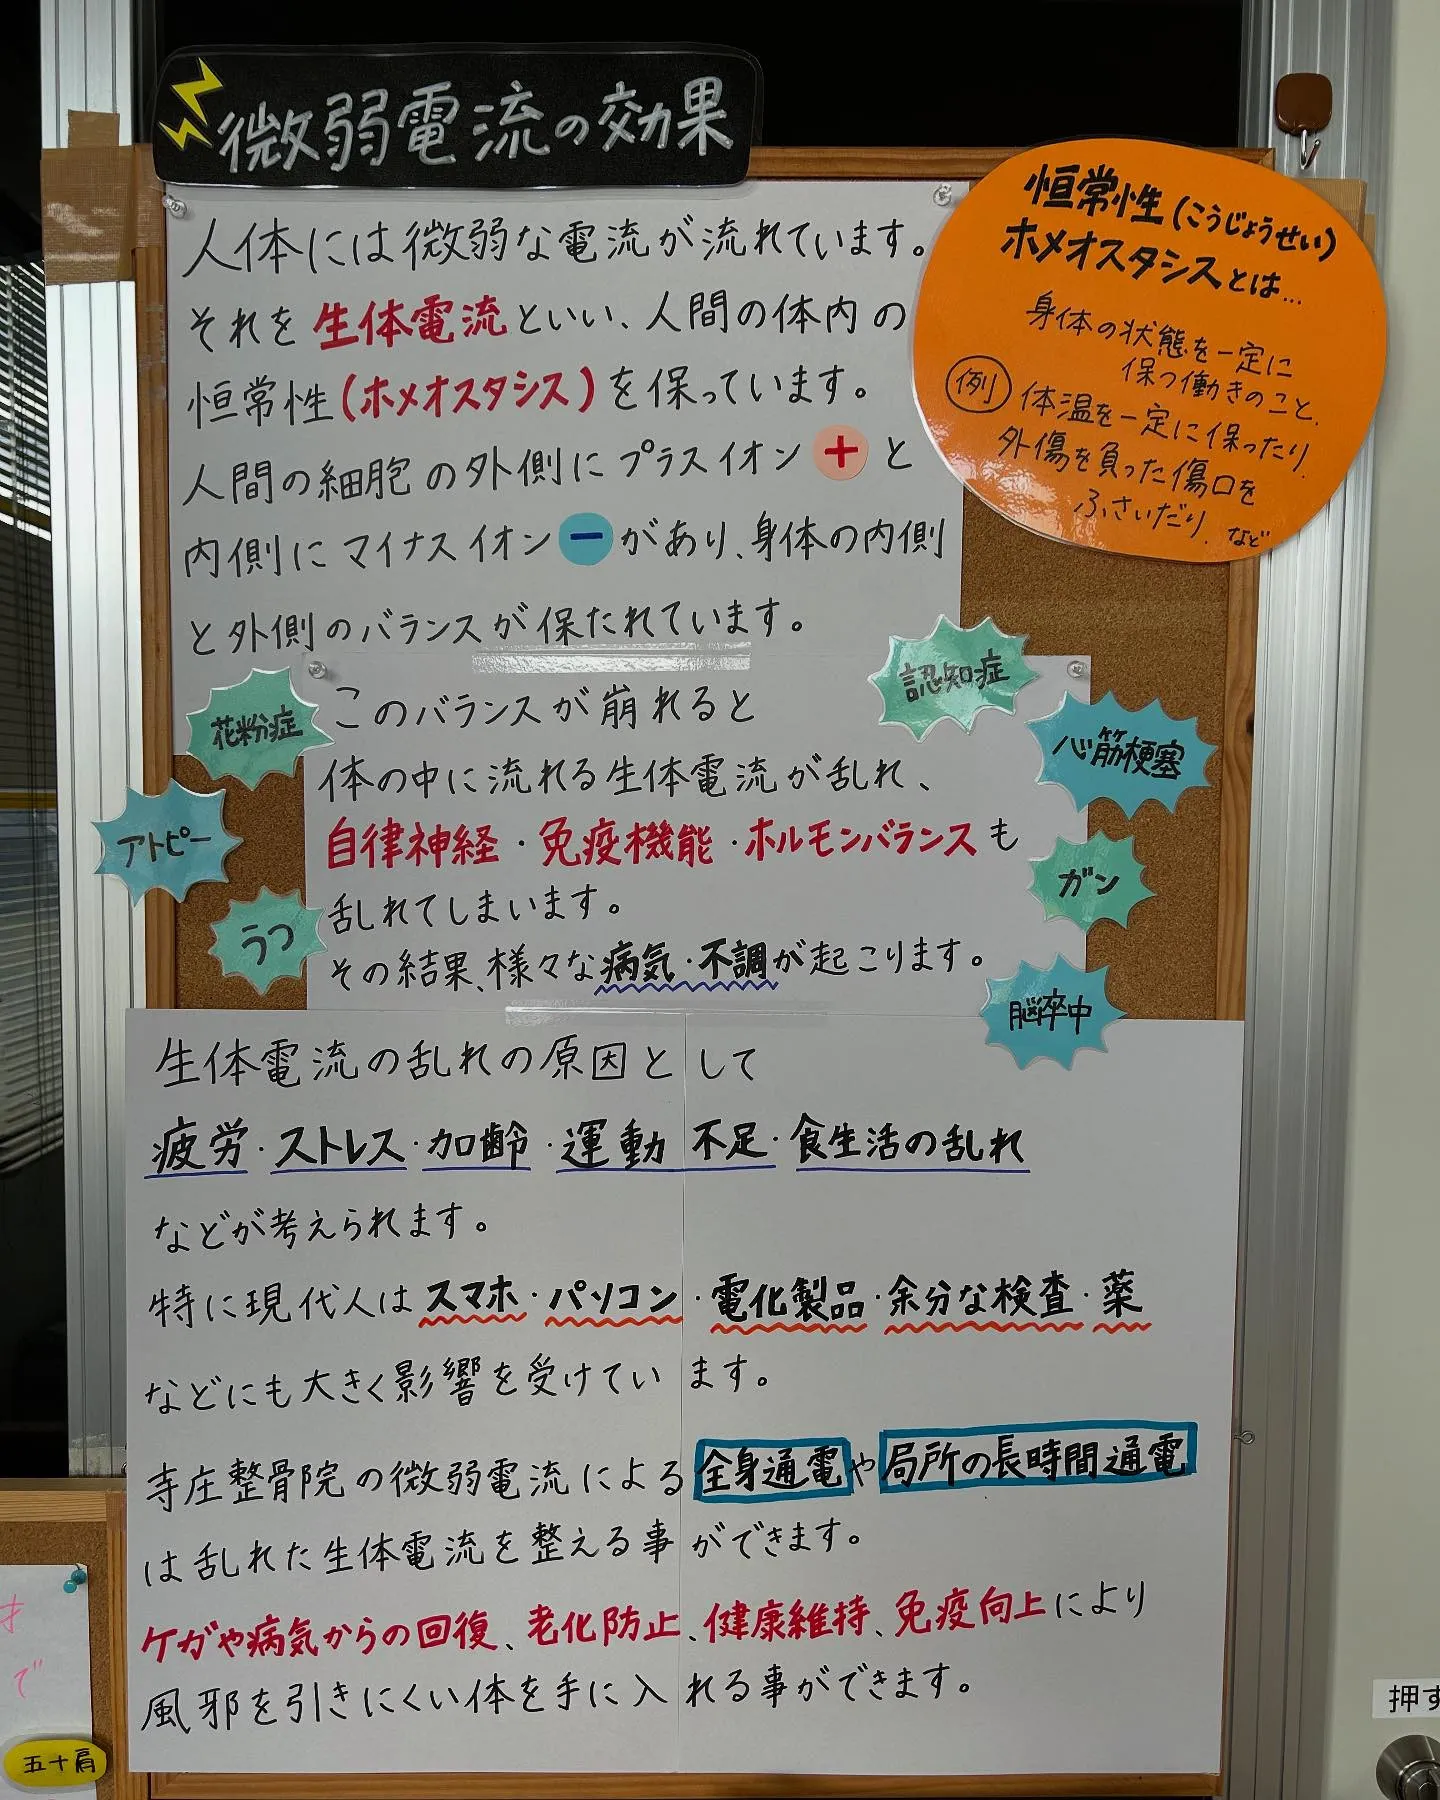 微弱電流の効果
人体には微弱な電流が流れています。
それを生体電流といい、人間の体内の
恒常性(ホメオスタシス)を保っています。
人間の細胞の外側にプラスイオン+と
内側にマイナスイオン-があり、身体の内側
と外側のバランスが保たれています。
恒常性(こうじょうせい)
ホメオスタシスとは…
身体の状態を一定に
保つ働きのこと、
例 体温を一定に保ったり、
外傷を負った傷口を
ふさいだり、など
このバランスが崩れると
体の中に流れる生体電流が乱れ、
自律神経・免疫機能・ホルモンバランスも
乱れてしまいます。
その結果、様々な病気・不調が起こります。
花粉症
アトピー
うつ
認知症
心筋梗塞
ガン
脳卒中
生体電流の乱れの原因として
疲労・ストレス・加齢・運動不足・食生活の乱れ
などが考えられます。
特に現代人はスマホ・パソコン・電化製品・余分な検査・薬
などにも大きく影響を受けています。
寺庄整骨院の微弱電流による全身通電や局所の長時間通電
は乱れた生体電流を整える事ができます。
ケガや病気からの回復、老化防止、健康維持、免疫向上により
風邪を引きにくい体を手に入れる事ができます。
で
五十肩
押す